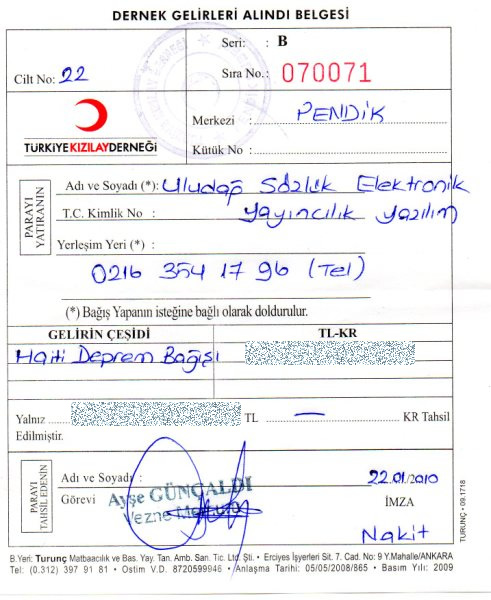 DERNEK GELİRLERİ ALINDI BELGESİ
Cilt No: 22
Seri: : B
Sıra No.: 070071
TÜRKİYE KIZILAY DERNEĞİ
Merkezi : PENDİK
Kütük No :
PARAYI YATIRANIN
Adı ve Soyadı (*): Uludağ Sözlük Elektronik
T.C. Kimlik No : Yayıncılık Yazılım
Yerleşim Yeri (*) :
0216 354 17 96 (Tel)
(*) Bağış Yapanın isteğine bağlı olarak doldurulur.
GELİRİN ÇEŞİDİ TL-KR
Haiti Deprem Bağışı
Yalnız TL — KR Tahsil
Edilmiştir.
PARAYI TAHSİL EDENİN
Adı ve Soyadı : 22.01/2010
Görevi : Ayşe GÜNÇALDI İMZA
Vezne Memuru
Nakit
TURUNÇ - 09.1718
B.Yeri: Turunç Matbaacılık ve Bas. Yay. Tan. Amb. San. Tic. Ltd. Şti. • Erciyes İşyerleri Sit. 7. Cad. No: 9 Y.Mahalle/ANKARA
Tel: (0.312) 397 91 81 • Ostim V.D. 8720599946 • Anlaşma Tarihi: 05/05/2008/865 • Basım Yılı: 2009